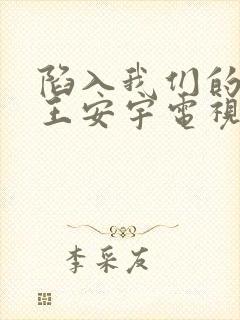 陷入我们的
王安宇電視
李采友